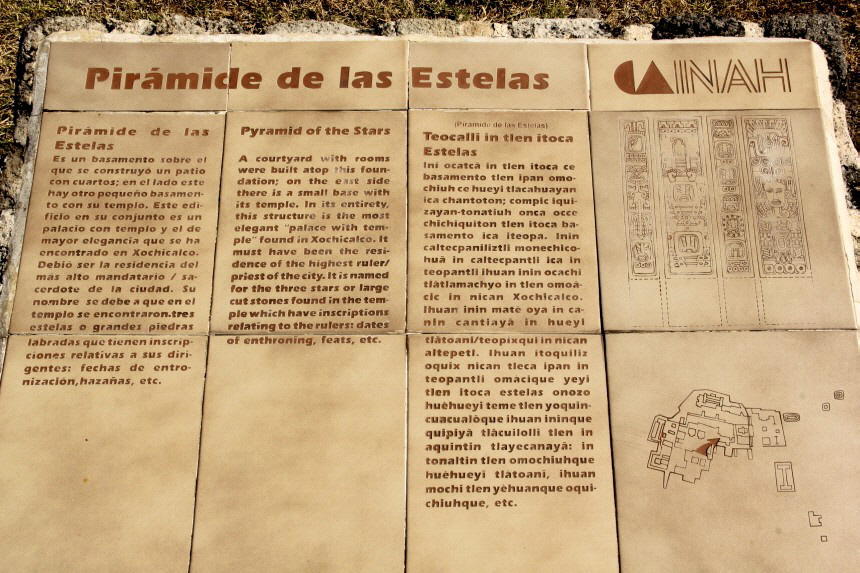 Pirámide de las Estelas
INAH
Pirámide de las
Estelas
Es un basamento sobre el
que se construyó un patio
con cuartos; en el lado este
hay otro pequeño basamen-
to con su templo. Este edi-
ficio en su conjunto es un
palacio con templo y el de
mayor elegancia que se ha
encontrado en Xochicalco.
Debió ser la residencia del
más alto mandatario / sa-
cerdote de la ciudad. Su
nombre se debe a que en el
templo se encontraron.tres
estelas o grandes piedras
labradas que tienen inscrip-
ciones relativas a sus diri-
gentes: fechas de entro-
nización,hazañas, etc.
Pyramid of the Stars
A courtyard with rooms
were built atop this foun-
dation; on the east side
there is a small base with
its temple. In its entirety,
this structure is the most
elegant "palace with tem-
ple" found in Xochicalco. It
must have been the resi-
dence of the highest ruler/
priest of the city. It is named
for the three stars or large
cut stones found in the tem-
ple which have inscriptions
relating to the rulers: dates
of enthroning, feats, etc.
(Piramide de las Estelas)
Teocalli in tlen itoca
Estelas
Ini ocatcâ in tlen itoca ce
basamento tlen ipan omo-
chiuh ce hueyi tlacahuayan
ica chantoton; compic iqui-
zayan-tonatiuh onca occe
chichiquiton tlen itoca ba-
samento ica iteopa. Inin
caltecpaniliztli monechico-
huâ in caltecpantli ica in
teopantli ihuan inin ocachi
tlâtlamachyo in tlen omoâ-
cic in nican Xochicalco.
Ihuan inin mate oya in ca-
nin cantiayâ in hueyi
tlâtoani/teopixqui in nican
altepetl. Ihuan itoquiliz
oquix nican tleca ipan in
teopantli omacique yeyi
tlen itoca estelas onozo
huêhueyi teme tlen yoquin-
cuacualôque ihuan ininque
quipiyâ tlâcuilolli tlen in
aquintin tlayecanayâ: in
tonaltin tlen omochiuhque
huêhueyi tlâtoani, ihuan
mochi tlen yêhuanque oqui-
chiuhque, etc.